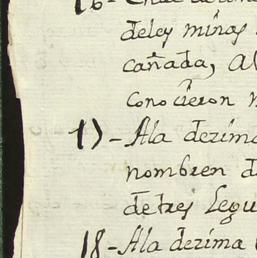 16-
deles minas
cañada, Al
conocieron
17-Ala dezima
nombren d
detres legu
18-Ala dezima